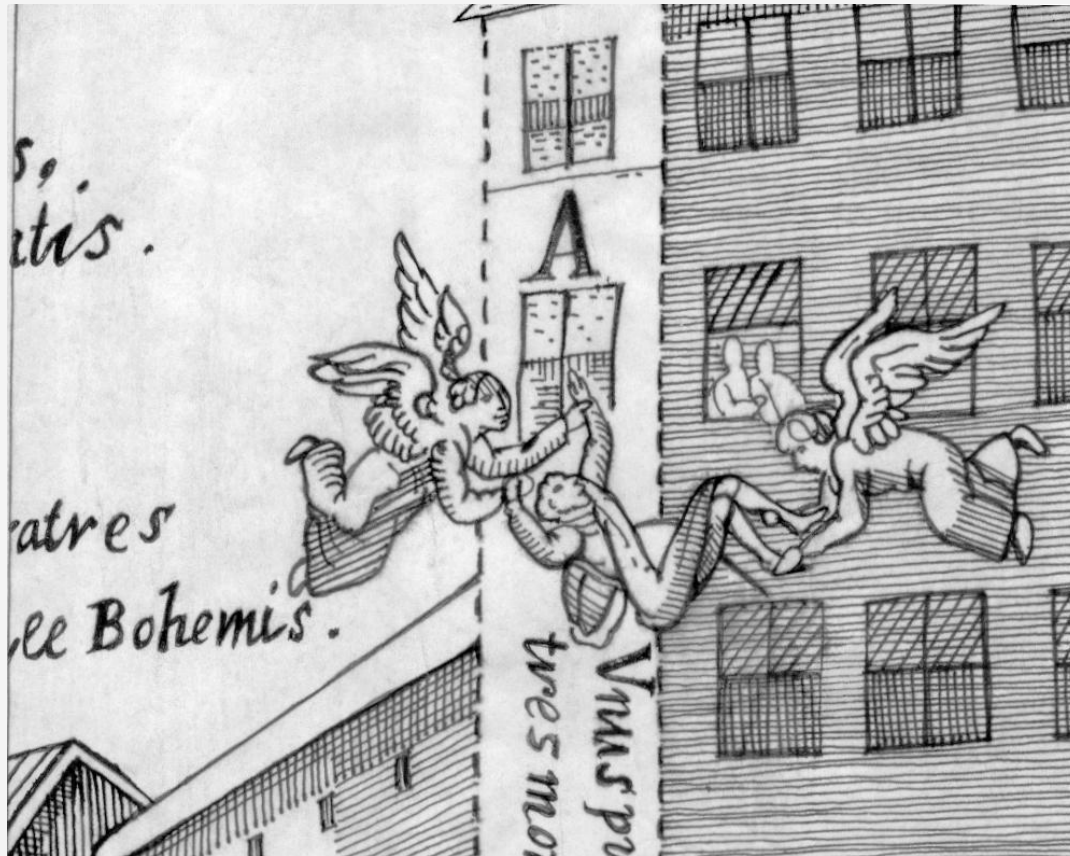 s,.
atis.
ratres
ee Bohemis.
A
Vnus pa
tres mor